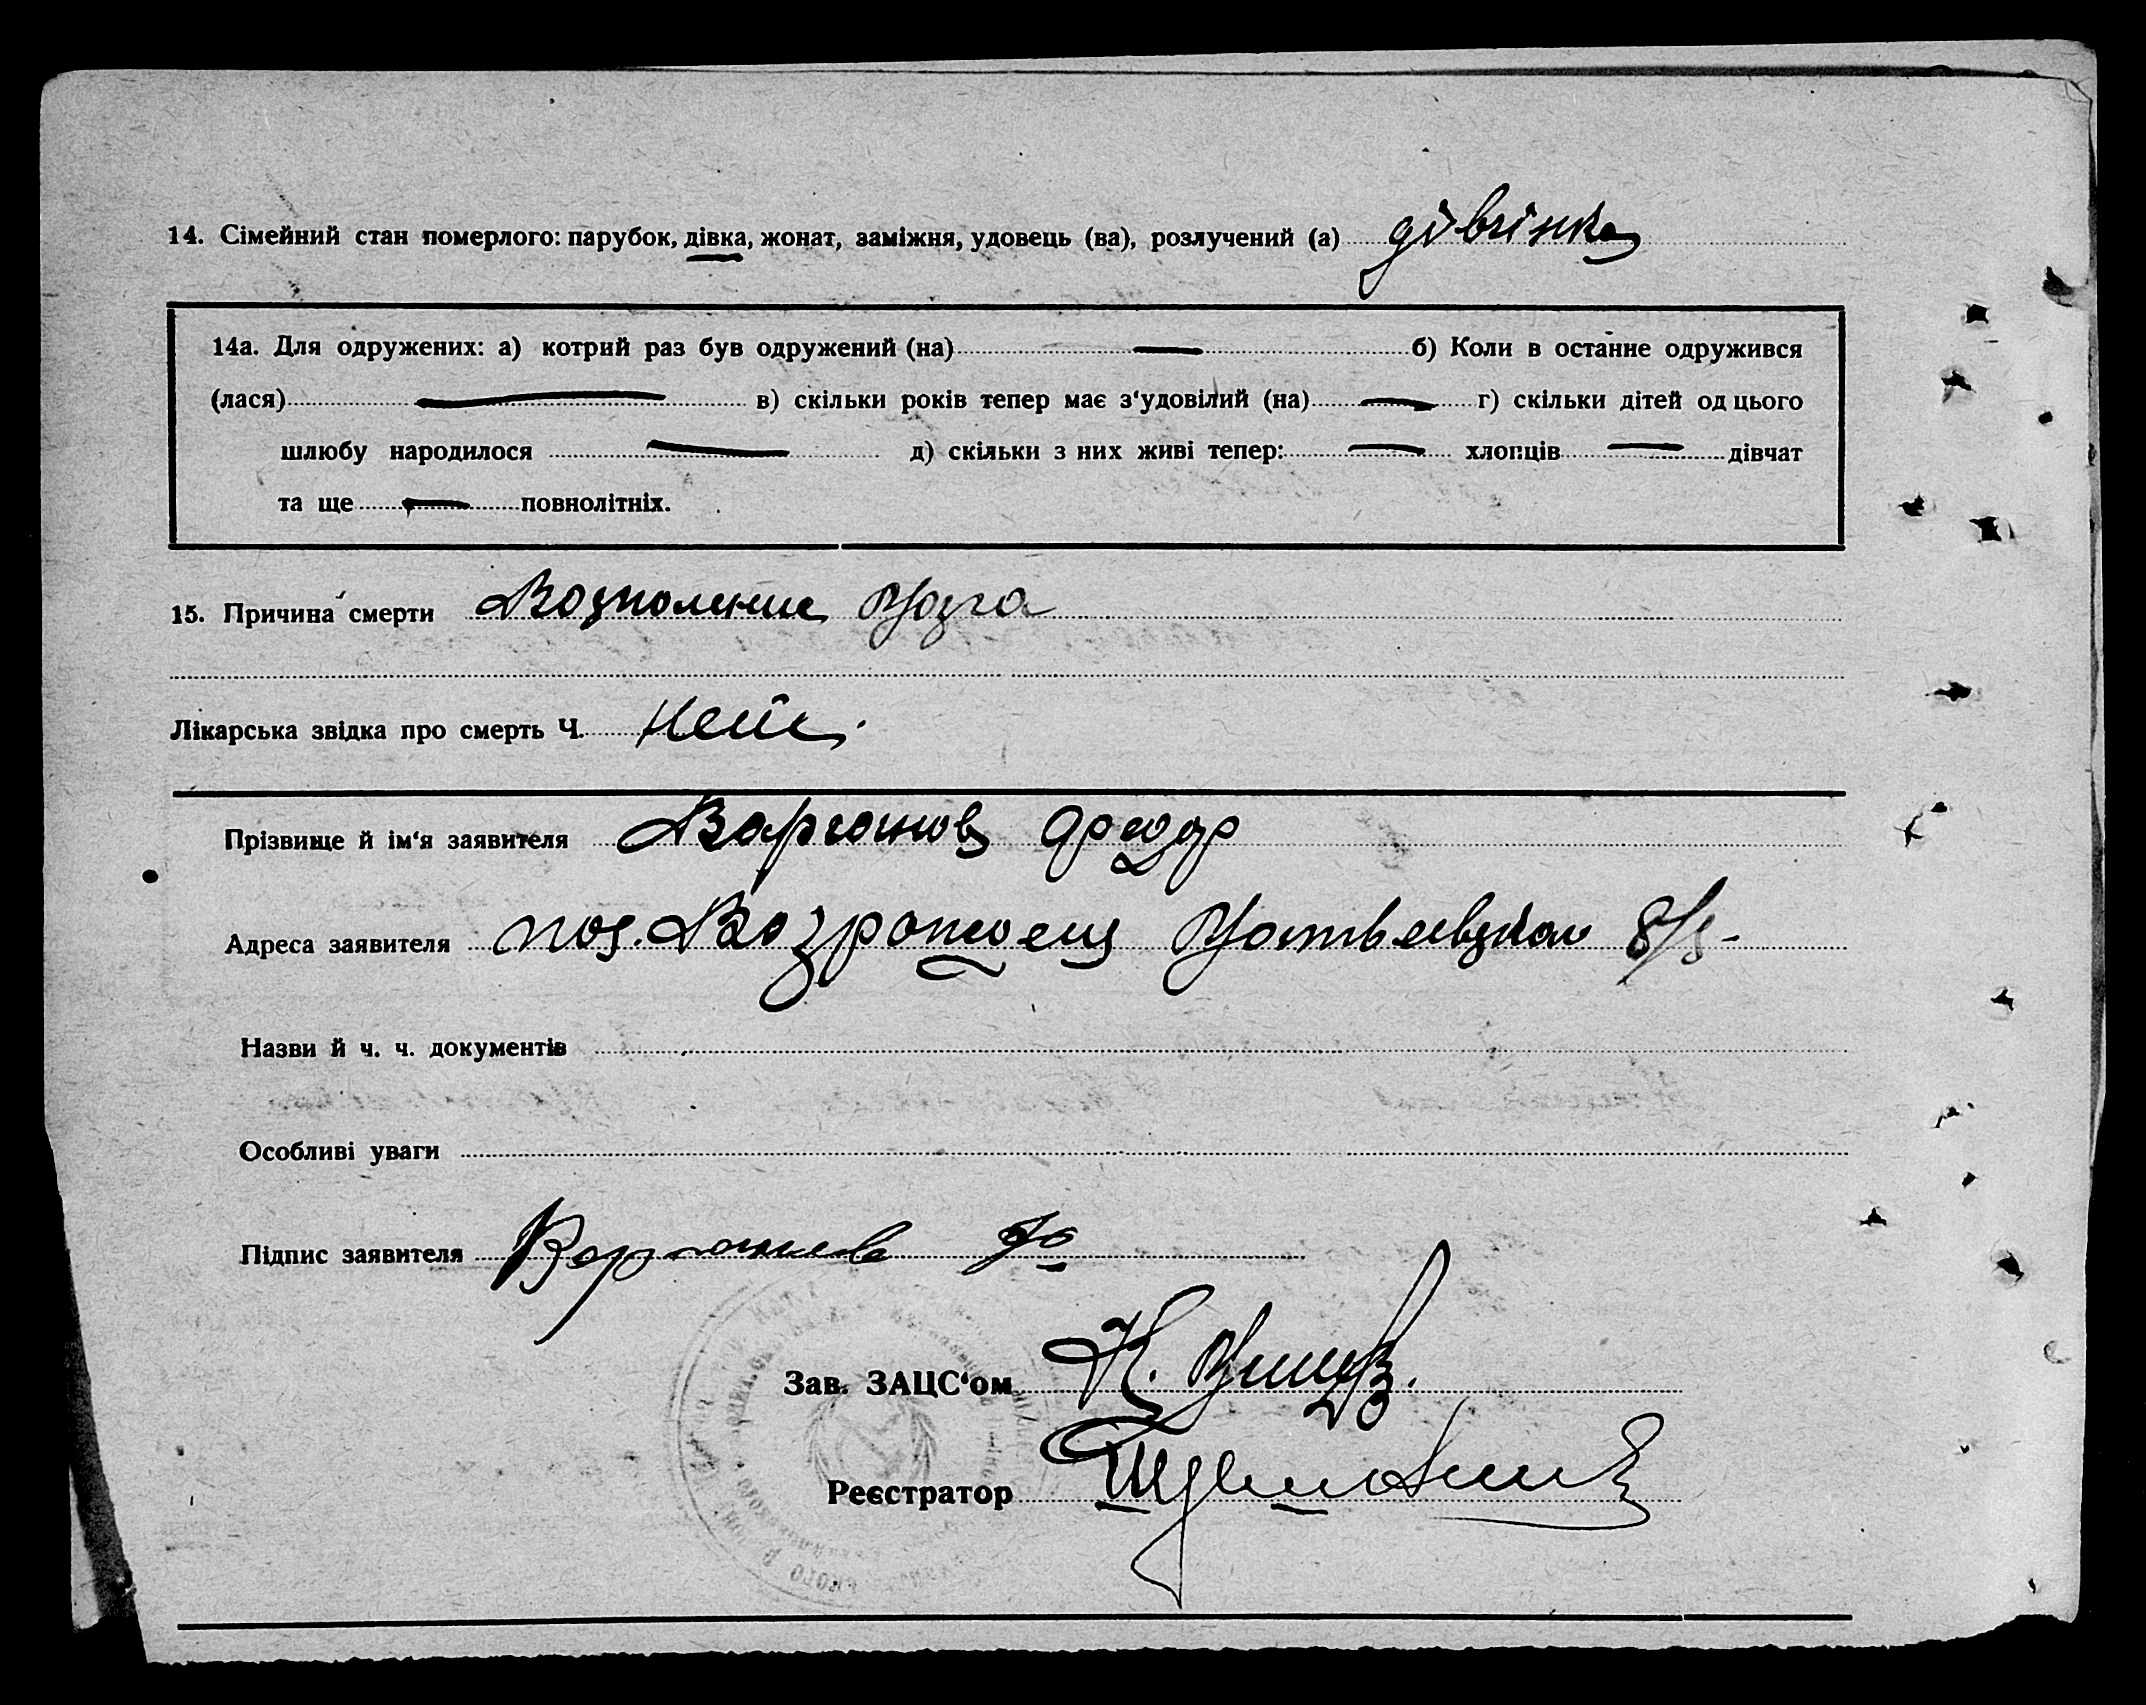 14. Сімейний стан померлого: парубок, дівка, жонат, заміжня, удовець (ва), розлучений (а) дівчінка
14а. Для одружених: а) котрий раз був одружений (на) — б) Коли в останне одружився
(лася) — в) скільки років тепер має з‘удовілий (на) — г) скільки дітей од цього
шлюбу народилося — д) скільки з них живі тепер: — хлопців — дівчат
та ще — повнолітніх.
15. Причина смерти Возполение Мозга
Лікарська звідка про смерть Ч. нет.
Прізвище й ім‘я заявителя Варганов Федор
Адреса заявителя пос. Матвеевской с/с
Назви й ч. ч. документів
Особливі уваги
Підпис заявителя Варганов Ф
Зав. ЗАЦС‘ом
Реєстратор